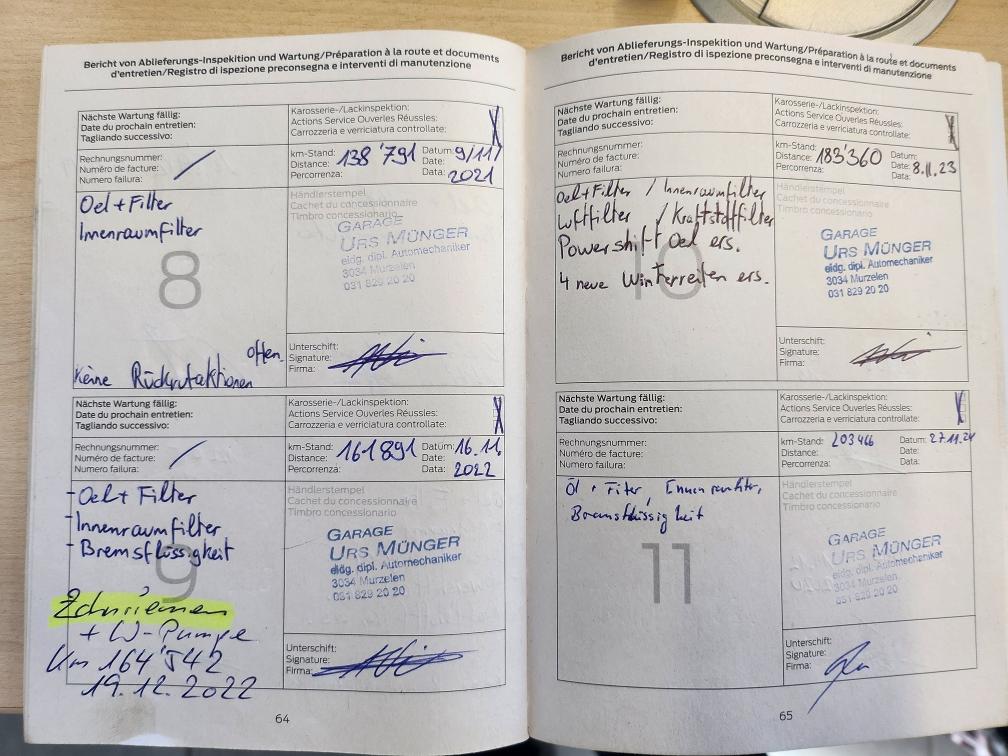 Bericht von Ablieferungs-Inspekition und Wartung/Préparation à la route et documents
d'entretien/Registro di ispezione preconsegna e interventi di manutenzione
Nächste Wartung fällig:
Date du prochain entretien:
Tagliando successivo:
Karosserie-/Lackinspektion:
Actions Service Ouverles Réussles:
Carrozzeria e verriciatura controllate: X
Rechnungsnummer: /
Numéro de facture:
Numero failura:
km-Stand: 138'791
Distance:
Percorrenza:
Datum: 9/11/
Date:
Data: 2021
Oel + Filter
Innenraumfilter
8
Keine Rückrufaktionen offen.
Händlerstempel
Cachet du concessionnaire
Timbro concessionario
GARAGE
URS MÜNGER
eidg. dipl. Automechaniker
3034 Murzelen
031 829 20 20
Unterschift:
Signature:
Firma:
Nächste Wartung fällig:
Date du prochain entretien:
Tagliando successivo:
Karosserie-/Lackinspektion:
Actions Service Ouverles Réussles:
Carrozzeria e verriciatura controllate: X
Rechnungsnummer: /
Numéro de facture:
Numero failura:
km-Stand: 161891
Distance:
Percorrenza:
Datum: 16.11.
Date:
Data: 2022
- Oel + Filter
- Innenraumfilter
- Bremsflüssigkeit
9
Zahnriemen
+ W-Pumpe
Km 164'542
19.12.2022
Händlerstempel
Cachet du concessionnaire
Timbro concessionario
GARAGE
URS MÜNGER
eidg. dipl. Automechaniker
3034 Murzelen
031 829 20 20
Unterschift:
Signature:
Firma:
64
Bericht von Ablieferungs-Inspekition und Wartung/Préparation à la route et documents
d'entretien/Registro di ispezione preconsegna e interventi di manutenzione
Nächste Wartung fällig:
Date du prochain entretien:
Tagliando successivo:
Karosserie-/Lackinspektion:
Actions Service Ouverles Réussles:
Carrozzeria e verriciatura controllate: X
Rechnungsnummer:
Numéro de facture:
Numero failura:
km-Stand: 183'360
Distance:
Percorrenza:
Datum:
Date: 8.11.23
Data:
Oel + Filter / Innenraumfilter
Luftfilter / Kraftstoffilter
Powershift Oel ers.
10
4 neue Winterreifen ers.
Händlerstempel
Cachet du concessionnaire
Timbro concessionario
GARAGE
URS MÜNGER
eidg. dipl. Automechaniker
3034 Murzelen
031 829 20 20
Unterschift:
Signature:
Firma:
Nächste Wartung fällig:
Date du prochain entretien:
Tagliando successivo:
Karosserie-/Lackinspektion:
Actions Service Ouverles Réussles:
Carrozzeria e verriciatura controllate: X
Rechnungsnummer:
Numéro de facture:
Numero failura:
km-Stand: 203466
Distance:
Percorrenza:
Datum: 27.11.24
Date:
Data:
Öl + Filter,
Bremsflüssigkeit
11
Händlerstempel
Cachet du concessionnaire
Timbro concessionario
GARAGE
URS MÜNGER
eidg. dipl. Automechaniker
3034 Murzelen
031 829 20 20
Unterschift:
Signature:
Firma:
65